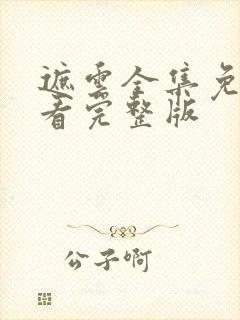 遮云全集免
看完整版
公子啊